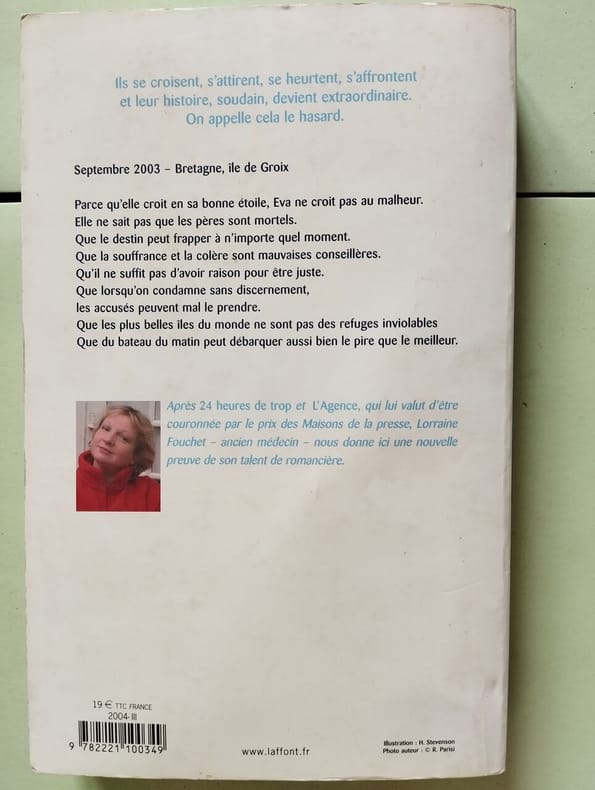 Ils se croisent, s'attirent, se heurtent, s'affrontent
et leur histoire, soudain, devient extraordinaire.
On appelle cela le hasard.
Septembre 2003 – Bretagne, île de Groix
Parce qu'elle croit en sa bonne étoile, Eva ne croit pas au malheur.
Elle ne sait pas que les pères sont mortels.
Que le destin peut frapper à n'importe quel moment.
Que la souffrance et la colère sont mauvaises conseillères.
Qu'il ne suffit pas d'avoir raison pour être juste.
Que lorsqu'on condamne sans discernement,
les accusés peuvent mal le prendre.
Que les plus belles îles du monde ne sont pas des refuges inviolables
Que du bateau du matin peut débarquer aussi bien le pire que le meilleur.
Après 24 heures de trop et L'Agence, qui lui valut d'être
couronnée par le prix des Maisons de la presse, Lorraine
Fouchet – ancien médecin – nous donne ici une nouvelle
preuve de son talent de romancière.
19 € TTC FRANCE
2004-III
9 782221 100349
www.laffont.fr
Illustration : H. Stevenson
Photo auteur : © R. Parisi